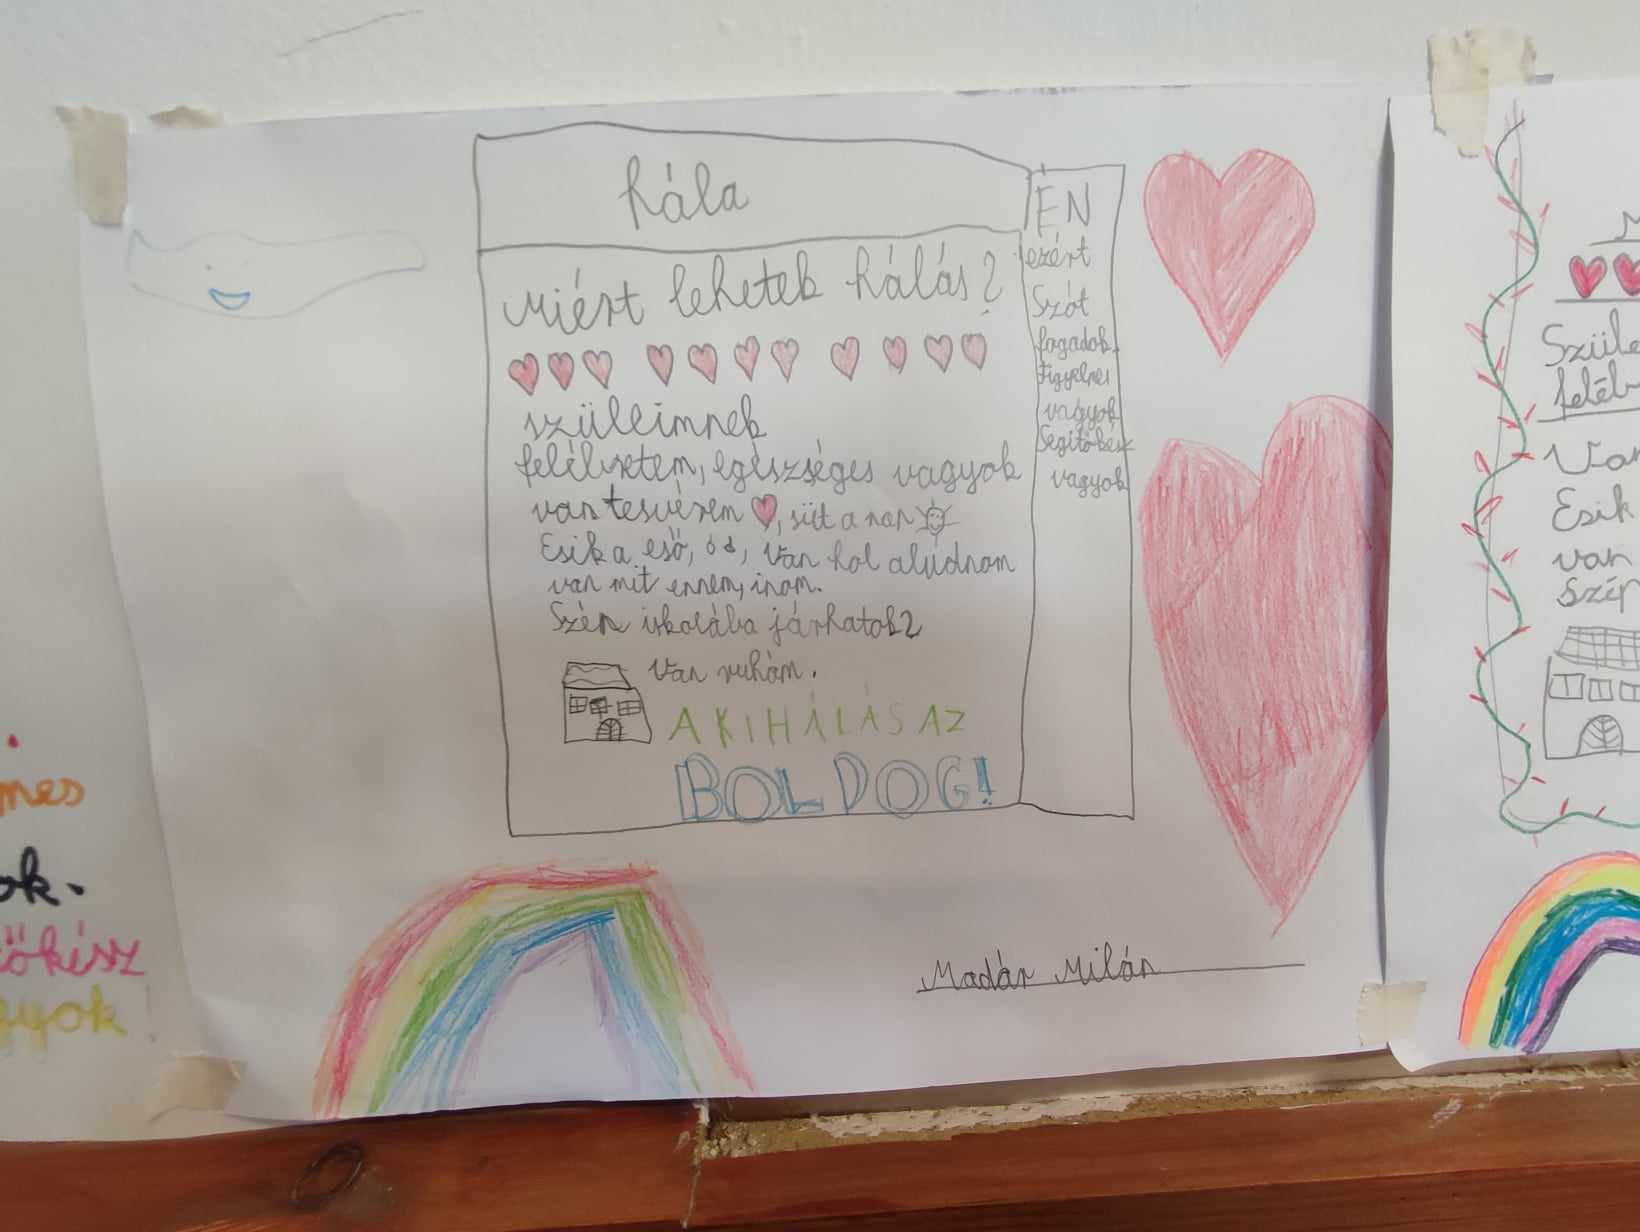 hála
Miért lehetek hálás?
szüleimnek
egészséges vagyok
van tesvérem, süt a nap
Esik a eső, Van hol alúdnom
van mit ennem, inom.
Szép iskolába járhatok?
Van ruhám.
AKI HÁLÁS AZ
BOLDOG!
ÉN
ezért
Szót
fogadok.
Figyelmes
vagyok
Segitőkész
vagyok
Madár Milán
mes
ok.
tőkész
gyok
Szüle
feléb
Van
Esik
van
Szép